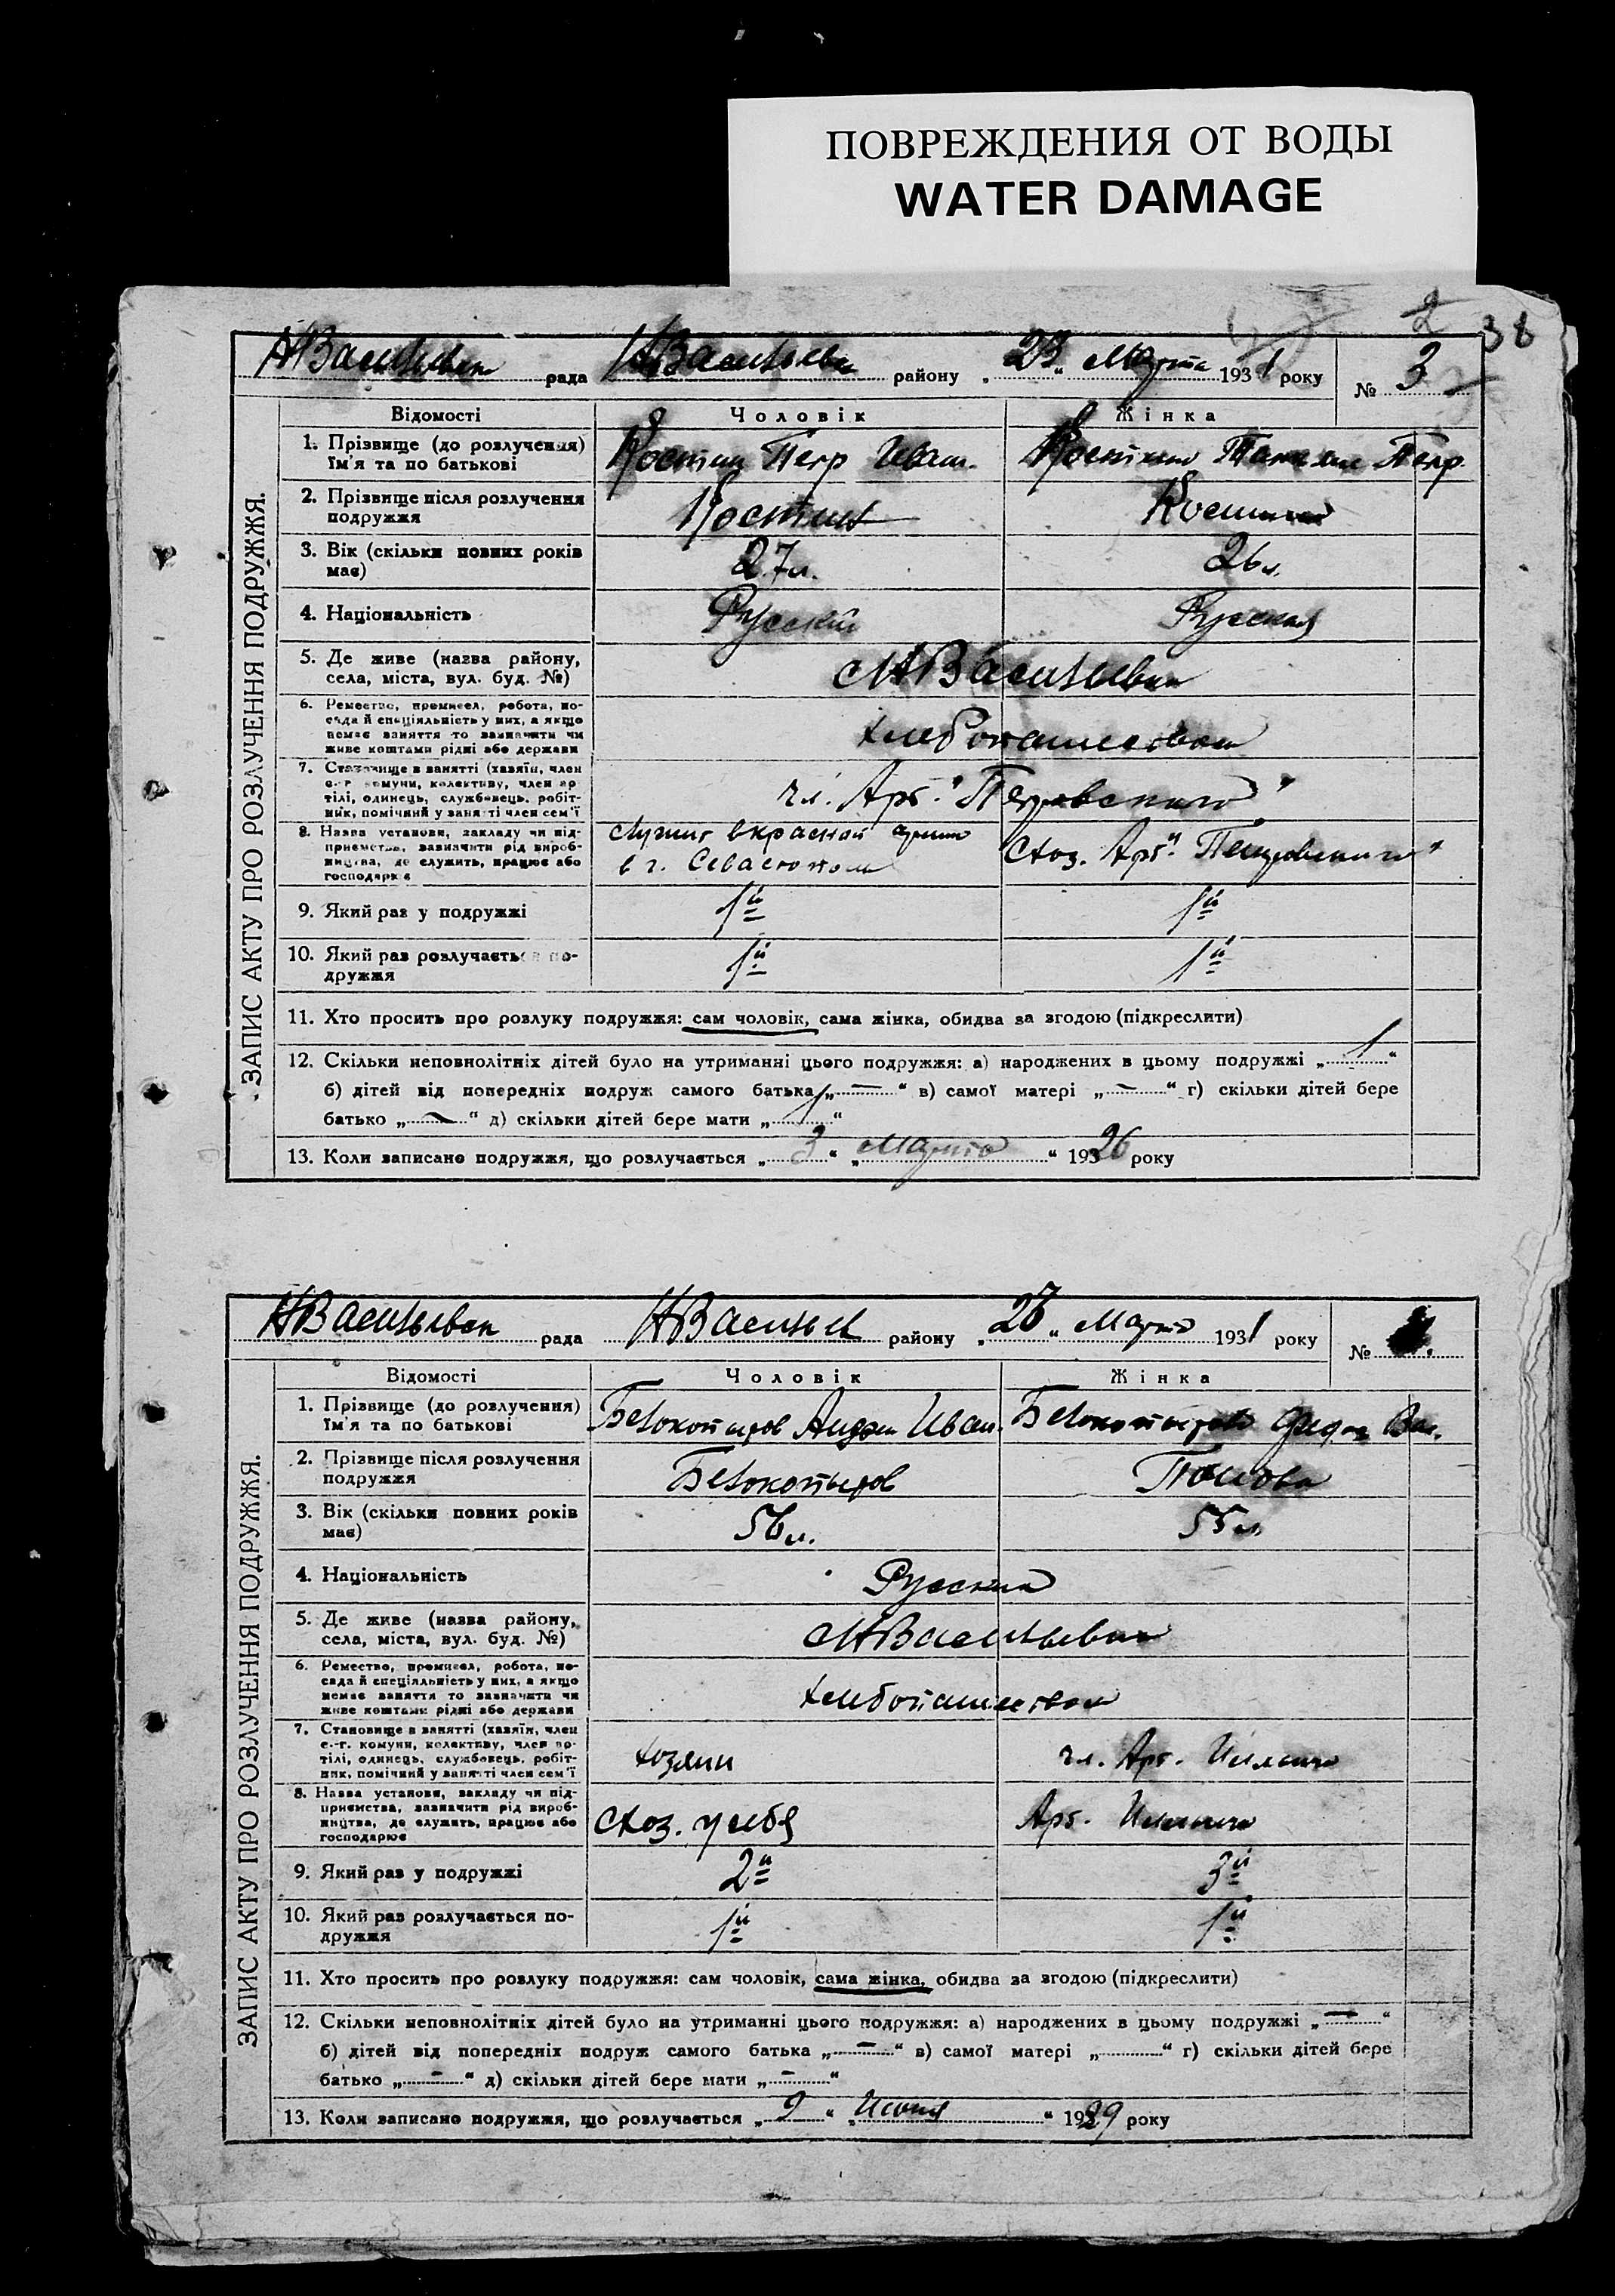 ПОВРЕЖДЕНИЯ ОТ ВОДЫ
WATER DAMAGE
2
38
НВасильевск рада НВасильевк району „23“ Марта 1931 року № 3
ЗАПИС АКТУ ПРО РОЗЛУЧЕННЯ ПОДРУЖЖЯ.
Відомості Чоловік Жінка
1. Прізвище (до розлучення) Ім'я та по батькові
Костин Петр Иван. Костина Петр.
2. Прізвище після розлучення подружжя
Костин Костина
3. Вік (скільки повних років має)
27 л. 26 л.
4. Національність
Русский Русская
5. Де живе (назва району, села, міста, вул. буд. №)
НВасильевка
6. Ремество, промисел, робота, посада й спеціяльність у них, а якщо немає заняття то зазначити чи живе коштами рідні або держави
хлебопашеством
7. Становище в занятті (хазяїн, член с.-г. комуни, колективу, член артілі, одинець, службовець, робітник, помічний у занятті член сем'ї
чл. Арт. "Петровского"
8. Назва установи, закладу чи підприємства, зазначити рід виробництва, де служить, працює або господарює
Служит в красной армии
в г. Севастополе
Схоз. Арт. "Петровского"
9. Який раз у подружжі
1й 1й
10. Який раз розлучається подружжя
1й 1й
11. Хто просить про розлуку подружжя: сам чоловік, сама жінка, обидва за згодою (підкреслити)
12. Скільки неповнолітніх дітей було на утриманні цього подружжя: а) народжених в цьому подружжі „1“
б) дітей від попередніх подруж самого батька „—“ в) самої матері „—“ г) скільки дітей бере
батько „—“ д) скільки дітей бере мати „1“
13. Коли записано подружжя, що розлучається „3“ „Марта“ 1926 року
НВасильевск рада НВасильев району „28“ Марта 1931 року №
ЗАПИС АКТУ ПРО РОЗЛУЧЕННЯ ПОДРУЖЖЯ.
Відомості Чоловік Жінка
1. Прізвище (до розлучення) Ім'я та по батькові
Безкопытов Андрей Иван. Безкопытова Вас.
2. Прізвище після розлучення подружжя
Безкопытов Попова
3. Вік (скільки повних років має)
56 л. 55 л.
4. Національність
Русские
5. Де живе (назва району, села, міста, вул. буд. №)
НВасильевка
6. Ремество, промисел, робота, посада й спеціяльність у них, а якщо немає заняття то зазначити чи живе коштами рідні або держави
хлебопашеством
7. Становище в занятті (хазяїн, член с.-г. комуни, колективу, член артілі, одинець, службовець, робітник, помічний у занятті член сем'ї
хозяин чл. Арт. Ильича
8. Назва установи, закладу чи підприємства, зазначити рід виробництва, де служить, працює або господарює
Схоз. у себя Арт. Ильича
9. Який раз у подружжі
2й 3й
10. Який раз розлучається подружжя
1й 1й
11. Хто просить про розлуку подружжя: сам чоловік, сама жінка, обидва за згодою (підкреслити)
12. Скільки неповнолітніх дітей було на утриманні цього подружжя: а) народжених в цьому подружжі „—“
б) дітей від попередніх подруж самого батька „—“ в) самої матері „“ г) скільки дітей бере
батько „—“ д) скільки дітей бере мати „—“
13. Коли записано подружжя, що розлучається „9“ „Июня“ 1929 року